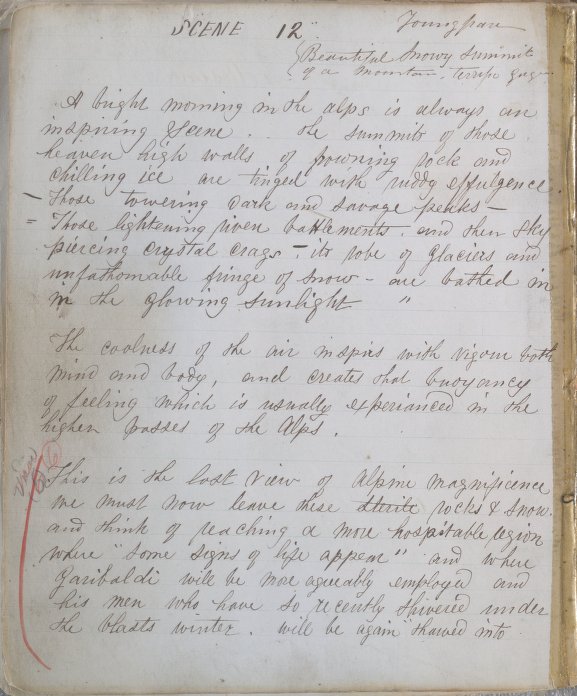 SCENE 12
Beautiful Snowy Summit
of a Mountain. Terrific Gorge
A bright morning in the alps is always an
inspiring Scene. . the summits of those
heaven high walls of frowning rock and
chilling ice are tinged with ruddy effulgence.
Those towering dark and savage peaks —
Those lightening riven battlements - and then sky
piercing crystal crags - its robe of Glaciers and
unfathomable fringe of snow - are bathed in
in the glowing sunlight "
The coolness of the air inspires with vigour both
mind and body, and creates that buoyancy
of feeling which is usually experianced in the
higher passes of the Alps.
This is the last view of Alpine magnificence
we must now leave these sterile rocks & snow.
and think of reaching a more hospitable region
where "some signs of life appear" and where
Garibaldi will be more agreeably employed and
his men who have so recently shivered under
the blasts winter. will be again "thawed into